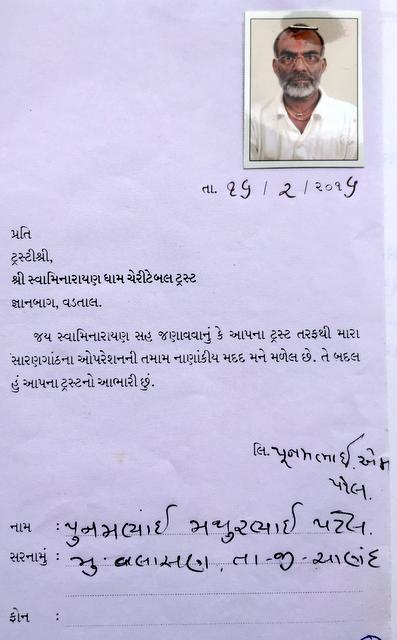 તા. ૧૬ / ૨ / ૨૦૧૬
પ્રતિ
ટ્રસ્ટીશ્રી,
શ્રી સ્વામિનારાયણ ધામ ચેરીટેબલ ટ્રસ્ટ
જ્ઞાનબાગ, વડતાલ.
જય સ્વામિનારાયણ સહ જણાવવાનું કે આપના ટ્રસ્ટ તરફથી મારા
સારણગાંઠના ઓપરેશનની તમામ નાણાંકીય મદદ મને મળેલ છે. તે બદલ
હું આપના ટ્રસ્ટનો આભારી છું.
લિ. પૂનમભાઈ એમ
પટેલ.
નામ : પુનમભાઈ મથુરભાઈ પટેલ.
સરનામું : મુ વલાસણ, તા-જી-આણંદ
ફોન :